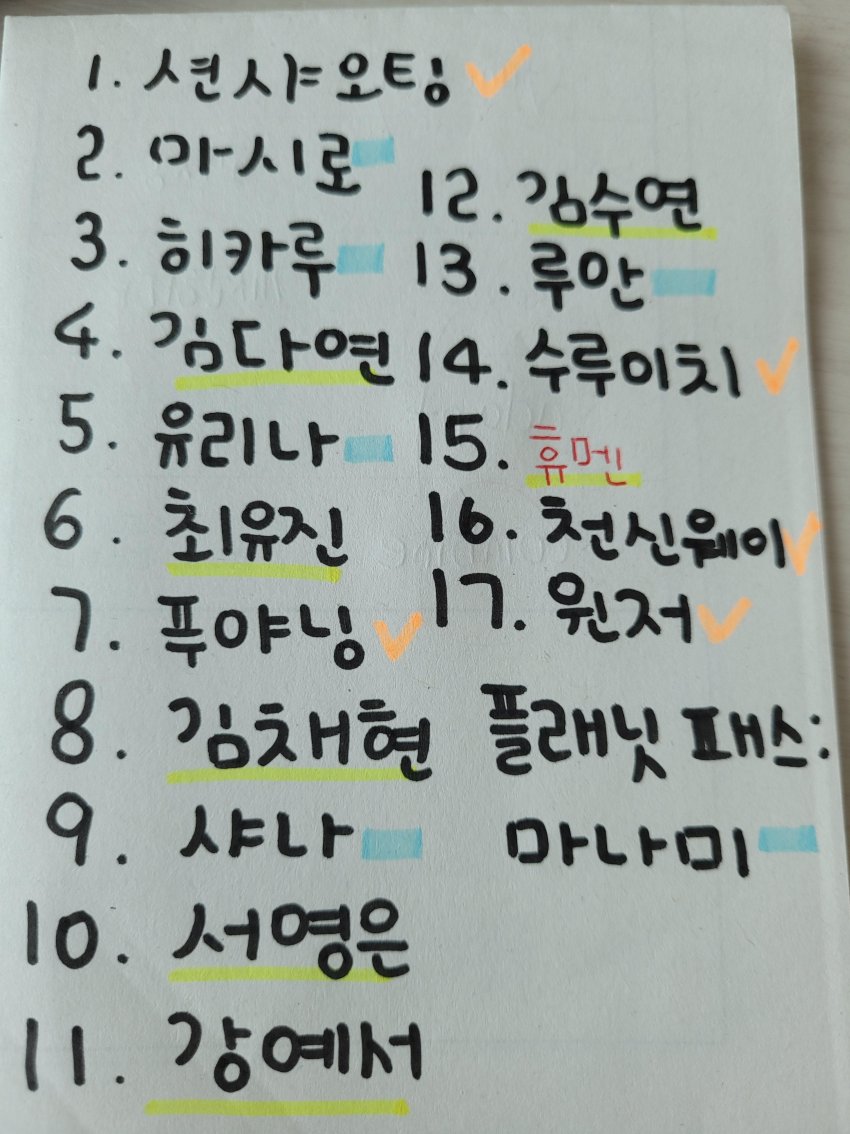 1.션샤오팅
2. 마시로
3. 히카루
4. 김다연
5. 유리나
6. 최유진
7. 푸야닝
8. 김채현
9. 샤나
10. 서영은
11. 강예서
12. 김수연
13. 루안
14. 수루이치
15. 휴멘
16. 천신웨이
17. 원저
플래닛 패스:
마나미